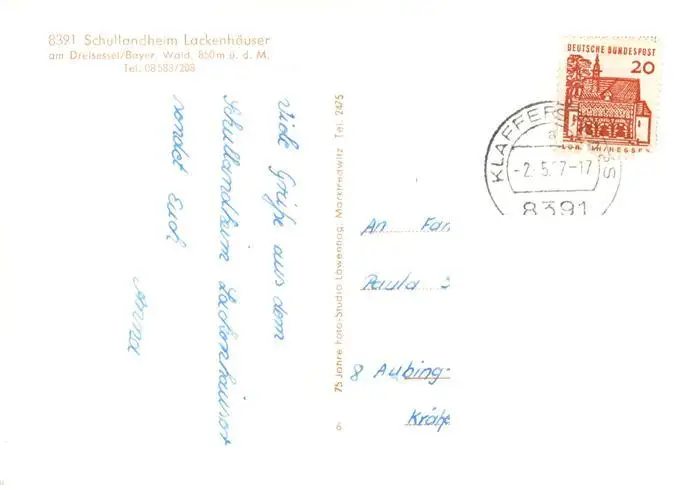 8391 Schullandheim Lackenhäuser
am Dreisessel/Bayer. Wald, 850 m ü. d. M.
Tel. 08583/208
Viele Grüße aus dem
Schullandheim Lackenhäuser
sendet Euch
Anna
75 Jahre Foto-Studio Löwenhag, Marktredwitz Tel. 2475
6
DEUTSCHE BUNDESPOST
20
LORSCH/HESSEN
KLAFFERS
a
-2.5. 7-17
8391
An Fam
Paula
8 Aubing-
Kräh